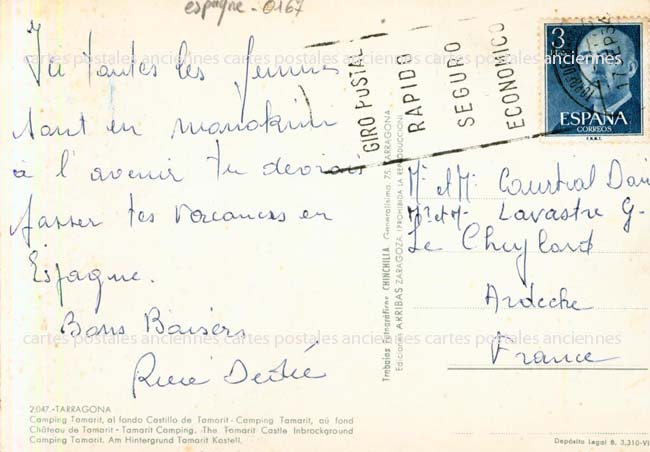 espagne - 0167
Ici toutes les femmes
sont en monokini
à l'avenir tu devrais
passer tes vacances en
Espagne.
Bons Baisers
GIRO POSTAL
RAPIDO
SEGURO
ECONOMICO
3
ESPAÑA
CORREOS
F.N.M.T.
Mr et Mme Courtial
Mr et Me Lavastre G-
Le Cheylard
Ardeche
France
Trabajos Fotográficos CHINCHILLA. Generalísimo, 75. TARRAGONA
Ediciones ARRIBAS ZARAGOZA. (PROHIBIDA LA REPRODUCCION)
cartes postales anciennes cartes postales anciennes cartes postales anciennes
cartes postales anciennes cartes postales anciennes cartes postales anciennes
2.047.-TARRAGONA
Camping Tamarit, al fondo Castillo de Tamarit - Camping Tamarit, aú fond
Château de Tamarit - Tamarit Camping. The Temarit Castle Inbrockground
Camping Tamarit. Am Hintergrund Tamarit Kastell.
Depósito Legal B. 3,310-VI